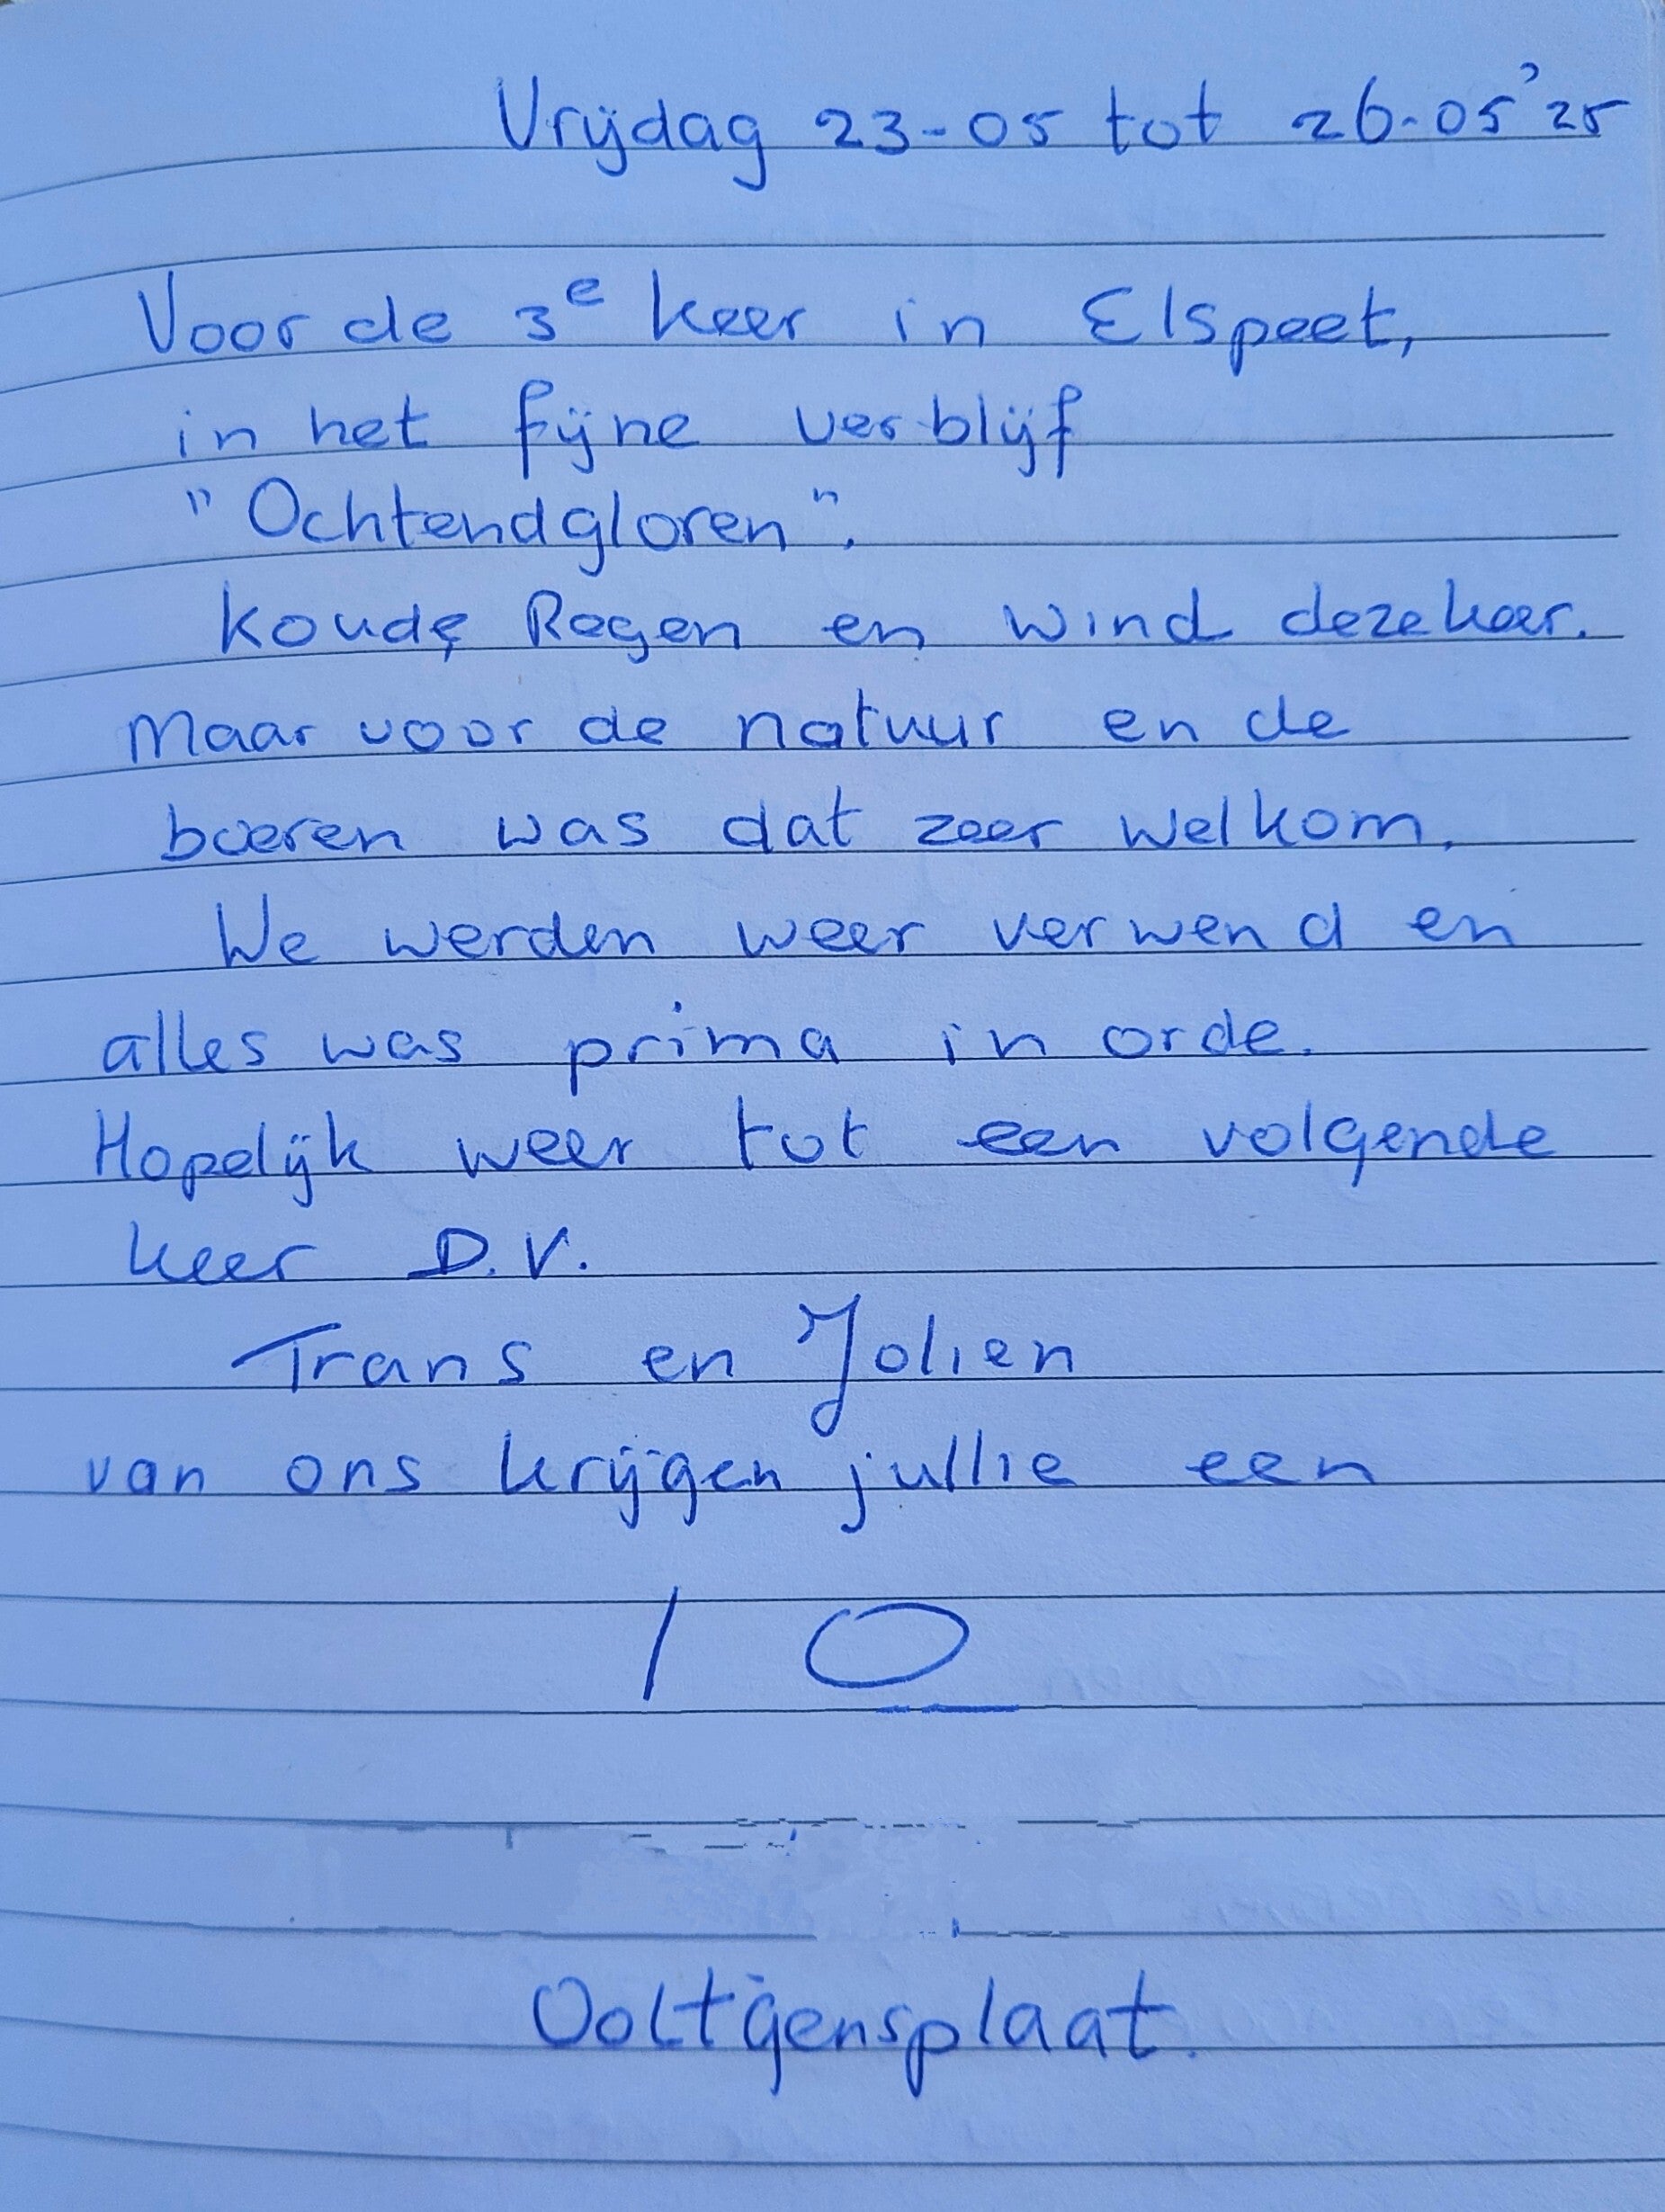 Vrijdag 23-05 tot 26-05'25
Voor de 3e keer in Elspeet,
in het fijne verblijf
"Ochtendgloren".
Koude, Regen en wind deze keer.
Maar voor de natuur en de
boeren was dat zeer welkom.
We werden weer verwend en
alles was prima in orde.
Hopelijk weer tot een volgende
keer D.V.
Frans en Jolien
van ons krijgen jullie een
10
Ooltgensplaat.